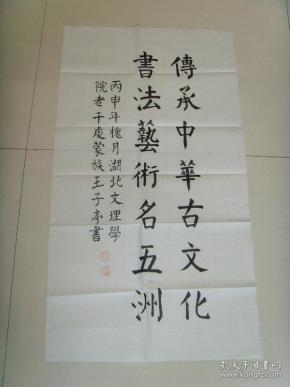 傳承中華古文化
書法藝術名五洲
丙申年槐月湖北文理學
院老干處蒙族王子亭書
孔夫子旧书网